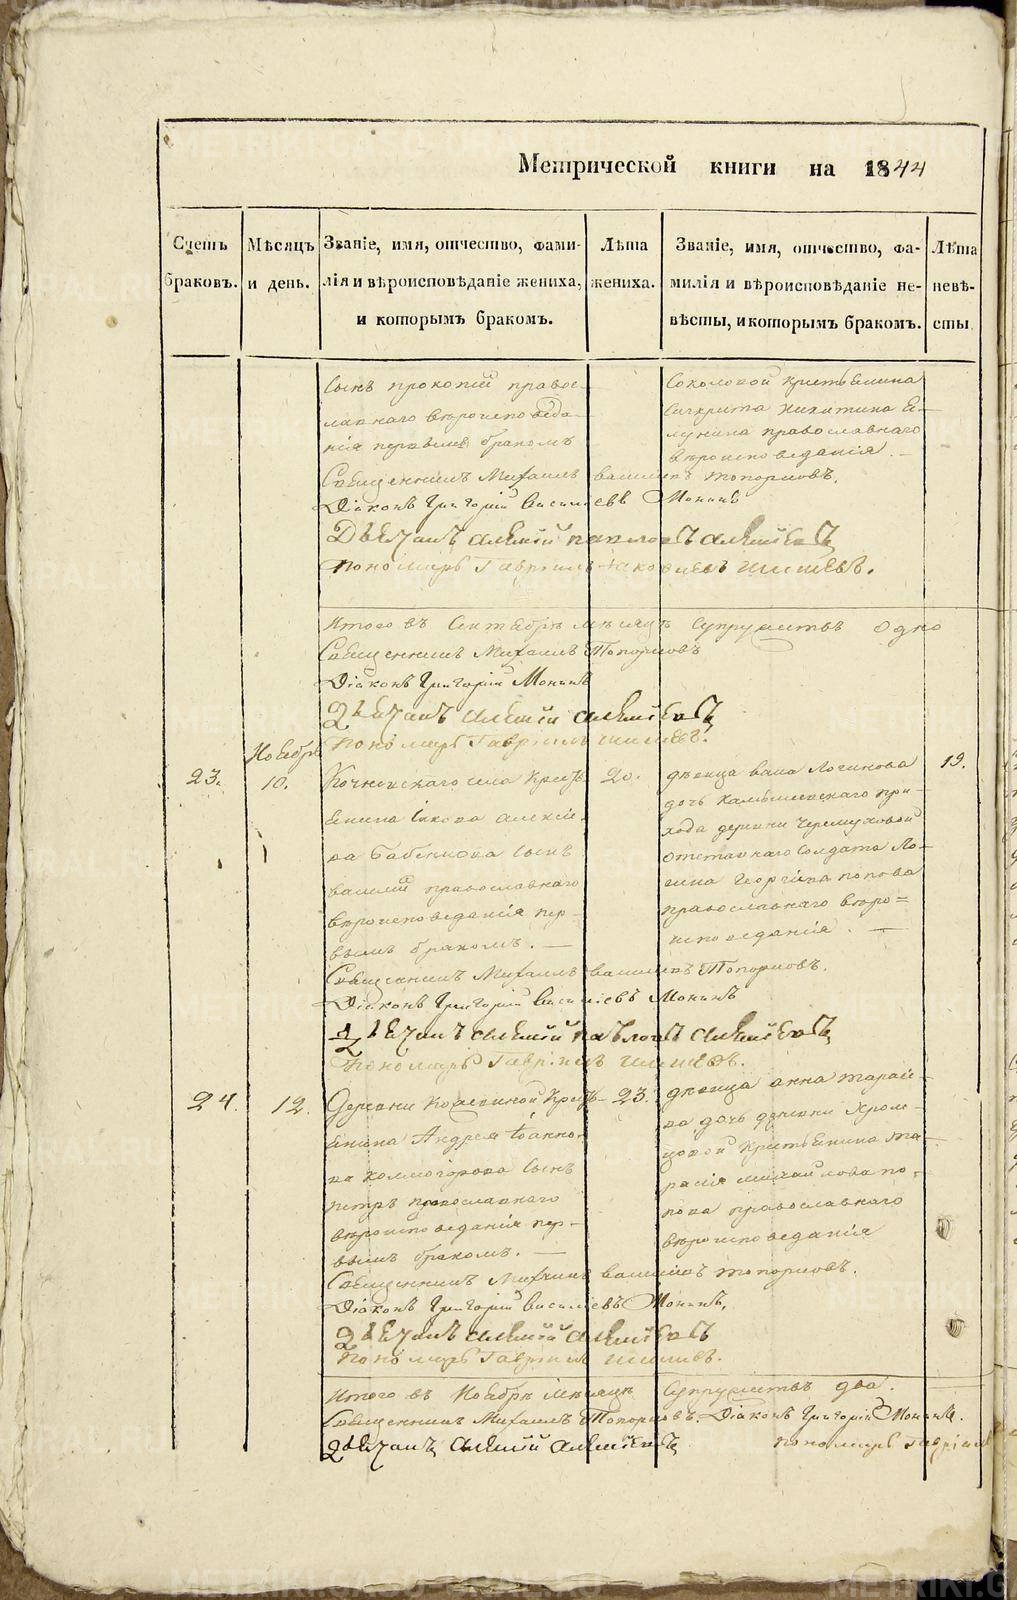 Метрической книги на 1844
Счетъ браковъ.
Мѣсяцъ и день.
Званіе, имя, отчество, фами-
лія и вѣроисповѣданіе жениха,
и которымъ бракомъ.
Лѣта
жениха.
Званіе, имя, отчество, фа-
милія и вѣроисповѣданіе не-
вѣсты, и которымъ бракомъ.
Лѣта
невѣ-
сты
сынъ прокопій правос-
лавнаго вѣроисповѣда-
нія первымъ бракомъ
Соколовой крестьянина
никитина
православнаго
вѣроисповеданія.
Священникъ Михаилъ васильевъ топорковъ.
Діаконъ Григорій Васильевъ Монинъ
Дьячекъ алексій павловъ алексіевъ
пономарь Гавріилъ Іаковлевъ шишевъ.
Итого въ Сентябрѣ мѣсяцѣ супружествъ одно
Священникъ Михаилъ Топорковъ
Діаконъ Григорій Монинъ
Дьячекъ алексій алексіевъ
пономарь Гавріилъ шишевъ.
Ноябрь
23.
10.
села крестъ-
янина Іакова алексіе-
ва Бабенкова сынъ
василій православнаго
вѣроисповеданія пер-
вымъ бракомъ. —
20.
дѣвица васа Логинова
дочь Камышевскаго при-
хода деревни Черемуховой
отставнаго солдата Ло-
гина Георгіева попова
православнаго вѣро=
исповеданія. —
19.
Священникъ Михаилъ васильевъ Топорковъ.
Діаконъ Григорій Васильевъ Монинъ
Дьячекъ алексій павловъ алексіевъ
Пономарь Гавріилъ шишевъ.
24.
12.
Деревни крестъ-
янина Андрея Іоанно-
ва колмогорова сынъ
петръ православнаго
вѣроисповеданія пер-
вымъ бракомъ. —
23.
дѣвица анна тарасіе-
ва дочь деревни Хром-
цовой крестьянина та-
расія михайлова по-
пова православнаго
вѣроисповеданія
Священникъ Михаилъ васильевъ топорковъ.
Діаконъ Григорій Васильевъ Монинъ.
Дьячекъ алексій алексіевъ
пономарь Гавріилъ шишевъ.
Итого въ Ноябрѣ мѣсяцѣ супружествъ два.
Священникъ Михаилъ Топорковъ. Діаконъ Григорій Монинъ.
Дьячекъ алексій алексіевъ пономарь Гавріилъ